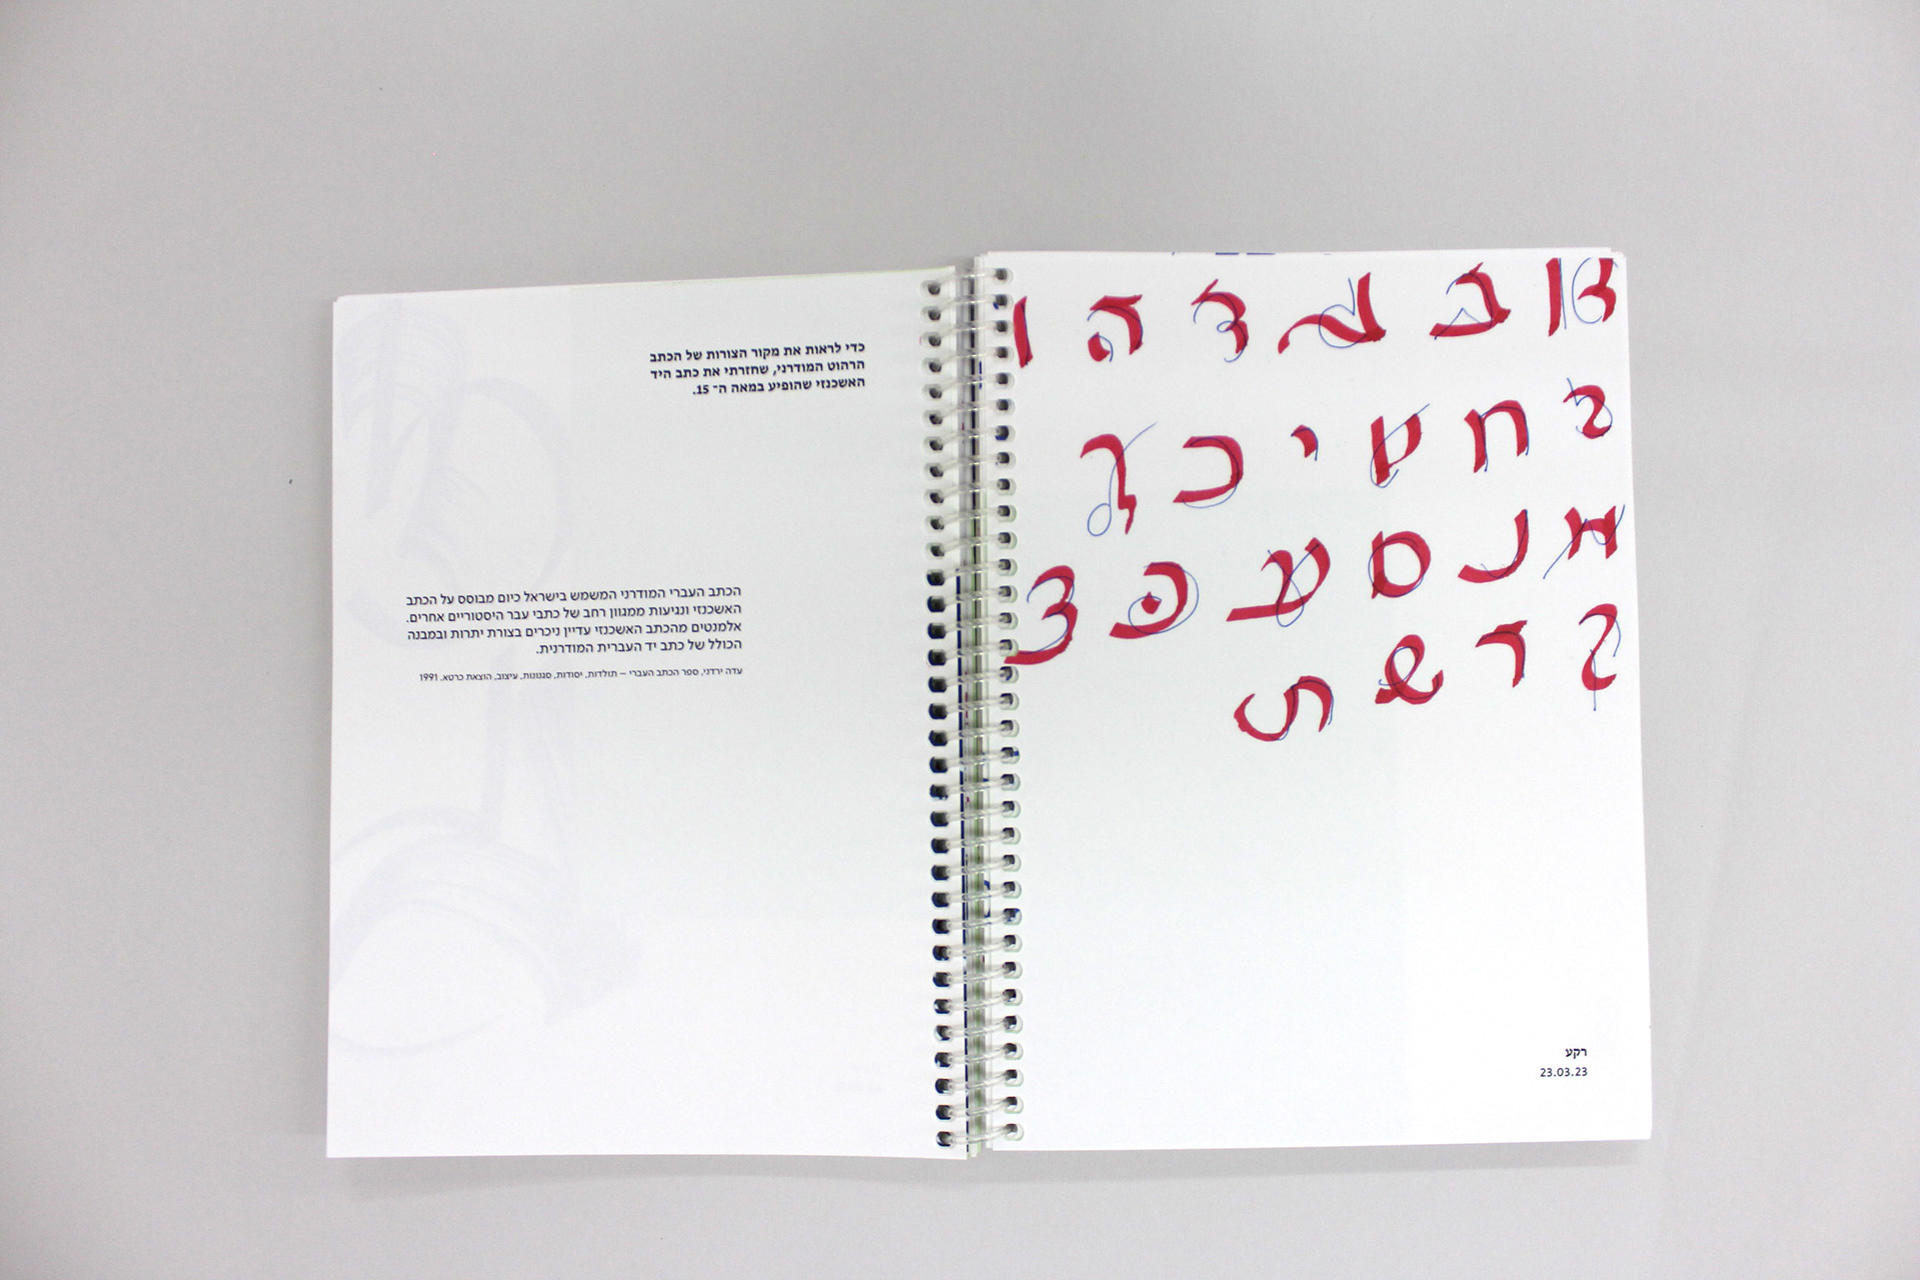 א ב ג ד ה ו
ז ח ט י כ ל
מ נ ס ע פ צ
ק ר ש ת
רקע
23.03.23
כדי לראות את מקור הצורות של הכתב
הרהוט המודרני, שחזרתי את כתב היד
האשכנזי שהופיע במאה ה־ 15.
הכתב העברי המודרני המשמש בישראל כיום מבוסס על הכתב
האשכנזי ונגיעות ממגוון רחב של כתבי עבר היסטוריים אחרים.
אלמנטים מהכתב האשכנזי עדיין ניכרים בצורת יתרות ובמבנה
הכולל של כתב יד העברית המודרנית.
עדה ירדני, ספר הכתב העברי – תולדות, יסודות, סגנונות, עיצוב, הוצאת כרטא. 1991